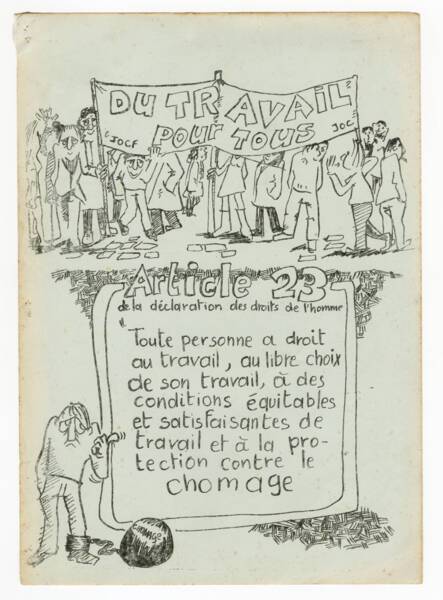 DU TRAVAIL
POUR TOUS
JOCF
JOC
Article 23
de la déclaration des droits de l'homme
"Toute personne a droit
au travail, au libre choix
de son travail, à des
conditions équitables
et satisfaisantes de
travail et à la pro-
tection contre le
chomage
chomage